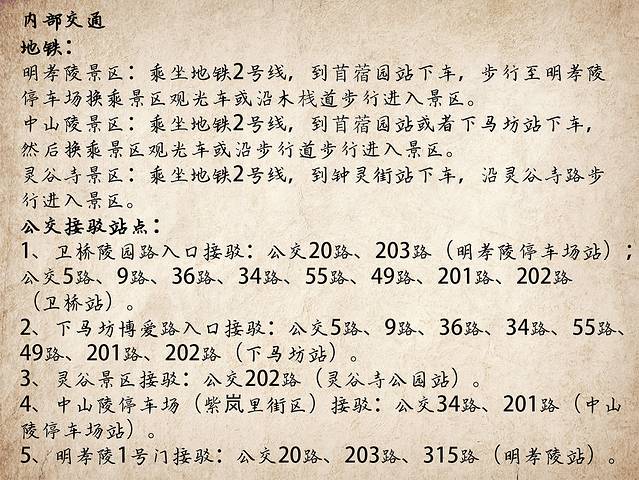 内部交通
地铁：
明孝陵景区：乘坐地铁2号线，到苜蓿园站下车，步行至明孝陵
停车场换乘景区观光车或沿木栈道步行进入景区。
中山陵景区：乘坐地铁2号线，到苜蓿园站或者下马坊站下车，
然后换乘景区观光车或沿步行道步行进入景区。
灵谷寺景区：乘坐地铁2号线，到钟灵街站下车，沿灵谷寺路步
行进入景区。
公交接驳站点：
1、卫桥陵园路入口接驳：公交20路、203路（明孝陵停车场站）；
公交5路、9路、36路、34路、55路、49路、201路、202路
（卫桥站）。
2、下马坊博爱路入口接驳：公交5路、9路、36路、34路、55路、
49路、201路、202路（下马坊站）。
3、灵谷景区接驳：公交202路（灵谷寺公园站）。
4、中山陵停车场（紫岚里街区）接驳：公交34路、201路（中山
陵停车场站）。
5、明孝陵1号门接驳：公交20路、203路、315路（明孝陵站）。